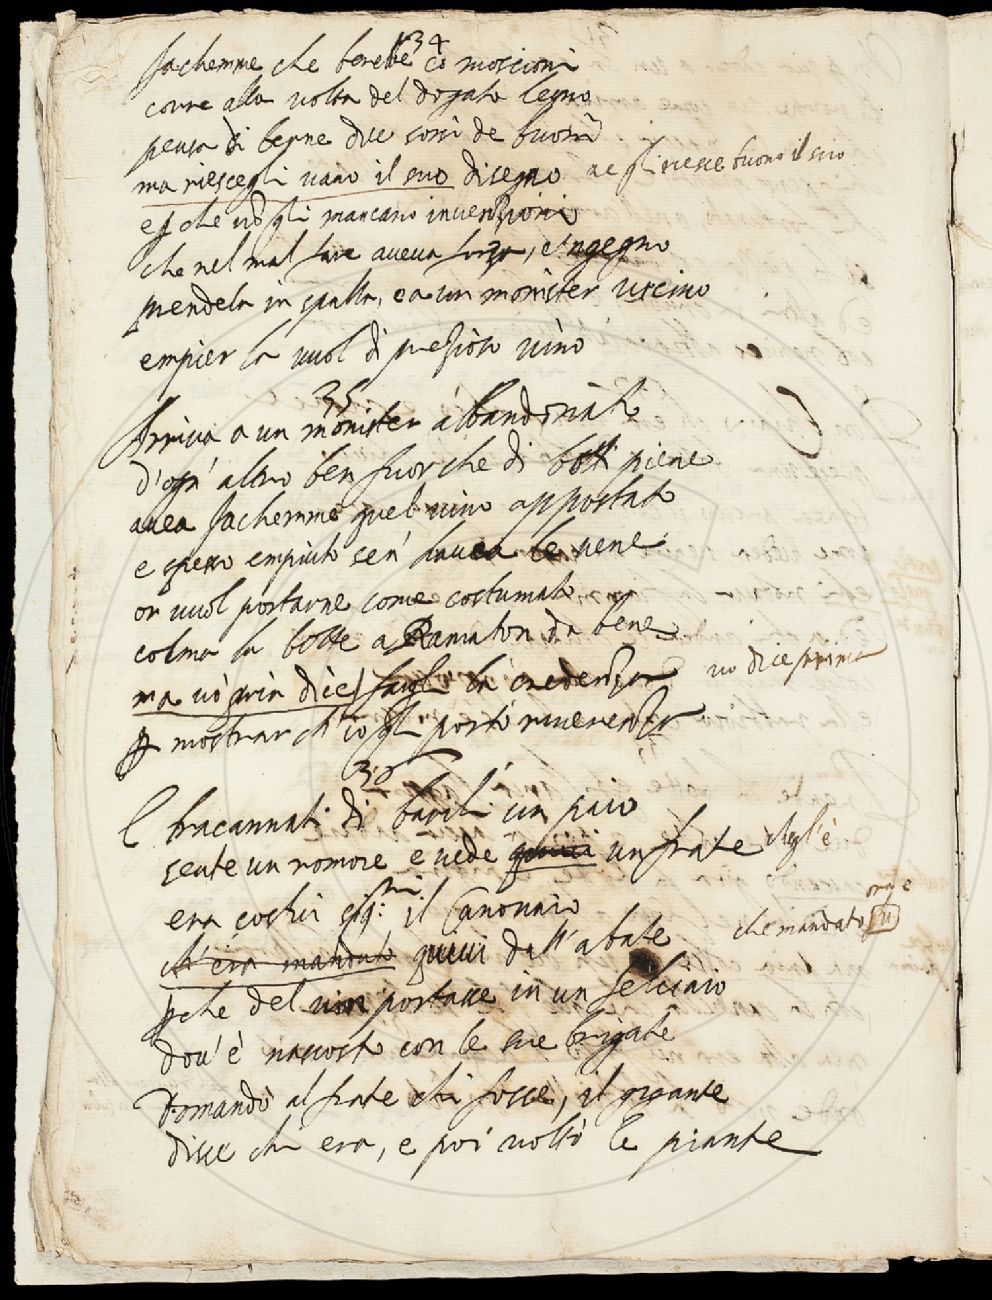 34
Sachemme che berebbe co moscioni
corre alla volta del dogato legno
pensa di berne due sorsi de buoni
ma riescegli vano il suo disegno ne gli riesce buono il suo
e pche nõ gli mancano invenzioni
che nel mal fare aveva forza, e ingegno
prendela in spalla, e a un monister vicino
empier la vuol di prezioso vino
35
Arriva a un monister abbandonato
d'ogn' altro ben fuor che di botti piene
avea Sachemme quel vino appostato
e spesso empiuto sen' aveva le vene
or vuol portarne come costumato
colma la botte a Ramaton da bene
ma vò pria dice farli la credenza vo dice prima
p mostrar ch'io gli porto riverenza
36
E tracannati di barili un paio
sente un romore e vede quivi un frate chegl'è
era costui sig: il Canovaio
ch'era mandato quivi dall'abate che mandato
pche del vin portasse in un
dov'è nascosto con le sue brigate
Domandò al frate chi fosse, il gigante
disse chi era, e poi voltò le piante